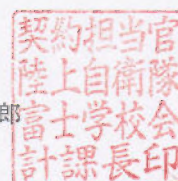 契約担当官
陸上自衛隊
富士学校会
計課長印
郎